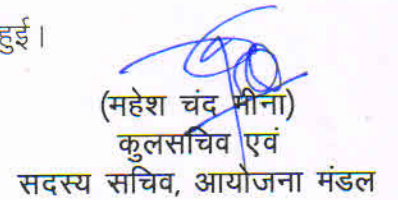 हुई।
(महेश चंद मीना)
कुलसचिव एवं
सदस्य सचिव, आयोजना मंडल